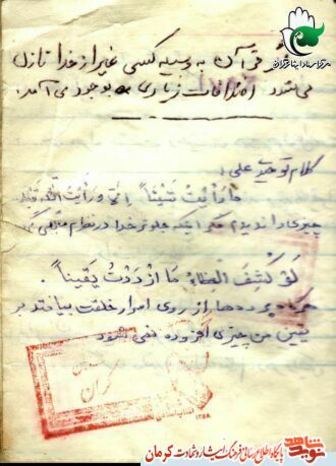 اگر قرآن به وسیله کسی غیر از خدا نازل
می شد اختلافات زیادی به وجود می آمد.
کلام توحیدی علی:
ما رأیت شیئاً إلا و رأیت الله قبله
چیزی را ندیدم مگر اینکه جلوتر خدا در نظرم
لَو کُشِفَ الغطاءُ ما ازدَدتُ یَقیناً.
هرگاه پرده ها از روی اسرار خلقت بیافتد بر
یقین من چیزی افزوده نمی شود
کرمان
نوید شاهد
پایگاه اطلاع رسانی فرهنگ ایثار و شهادت کرمان